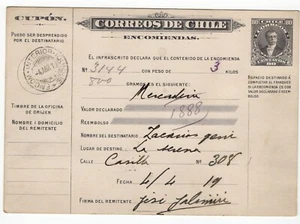 CUPÓN.
PUEDE SER DESPRENDIDO
POR EL DESTINATARIO
TIMBRE DE LA OFICINA
DE ORIJEN
NOMBRE I DOMICILIO
DEL REMITENTE
CORREOS DE CHILE
ENCOMIENDAS.
EL INFRASCRITO DECLARA QUE EL CONTENIDO DE LA ENCOMIENDA
Nº 3144 CON PESO DE 3 KILOS
800 GRAMOS ES EL SIGUIENTE:
Mercadería
VALOR DECLARADO
1888
REEMBOLSO
NOMBRE DEL DESTINATARIO Zacarias
LUGAR DE DESTINO La Serena
CALLE Casilla Nº 308
FECHA 4/4 19
FIRMA DEL REMITENTE José
80 80
CENTAVOS
ESPACIO DESTINADO A
COMPLETAR EL FRANQUEO
SI LA ENCOMIENDA ES
CON VALOR DECLARADO I
REEMBOLSO